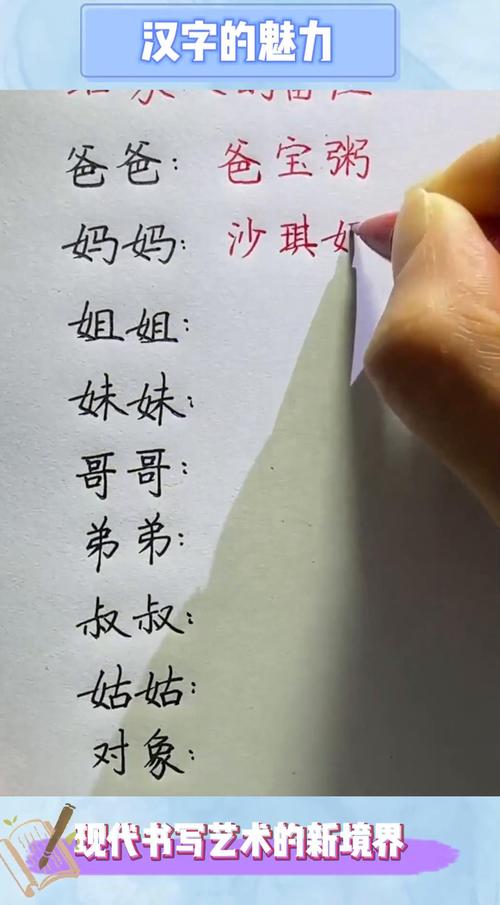 汉字的魅力
爸爸：爸宝粥
妈妈：沙琪
姐姐：
妹妹：
哥哥：
弟弟：
叔叔：
姑姑：
对象：
现代书写艺术的新境界